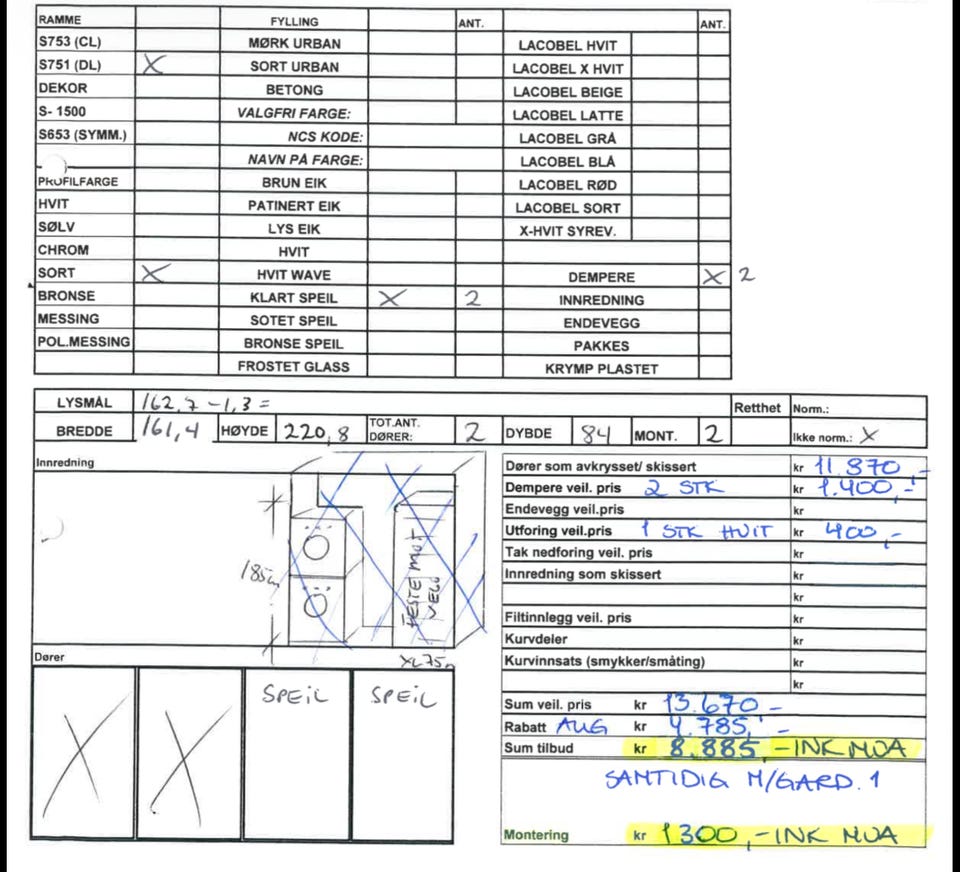 RAMME FYLLING ANT. ANT.
S753 (CL) MØRK URBAN LACOBEL HVIT
S751 (DL) X SORT URBAN LACOBEL X HVIT
DEKOR BETONG LACOBEL BEIGE
S- 1500 VALGFRI FARGE: LACOBEL LATTE
S653 (SYMM.) NCS KODE: LACOBEL GRÅ
NAVN PÅ FARGE: LACOBEL BLÅ
PROFILFARGE BRUN EIK LACOBEL RØD
HVIT PATINERT EIK LACOBEL SORT
SØLV LYS EIK X-HVIT SYREV.
CHROM HVIT
SORT X HVIT WAVE DEMPERE X 2
BRONSE KLART SPEIL X 2 INNREDNING
MESSING SOTET SPEIL ENDEVEGG
POL.MESSING BRONSE SPEIL PAKKES
FROSTET GLASS KRYMP PLASTET
LYSMÅL 162,7 -1,3 = Retthet Norm.:
BREDDE 161,4 HØYDE 220,8 TOT.ANT. DØRER: 2 DYBDE 84 MONT. 2 Ikke norm.: X
Innredning
185
FESTE MOT
VEGG
Dører
X X SPEIL SPEIL
Dører som avkrysset/ skissert kr 11.870,-
Dempere veil. pris 2 STK kr 1.400,-
Endevegg veil.pris kr
Utforing veil.pris 1 STK HVIT kr 400,-
Tak nedforing veil. pris kr
Innredning som skissert kr
kr
Filtinnlegg veil. pris kr
Kurvdeler kr
Kurvinnsats (smykker/småting) kr
kr
Sum veil. pris kr 13.670,-
Rabatt AUG kr 4.785,-
Sum tilbud kr 8.885,- INK MVA
SAMTIDIG M/GARD. 1
Montering kr 1300,- INK MVA